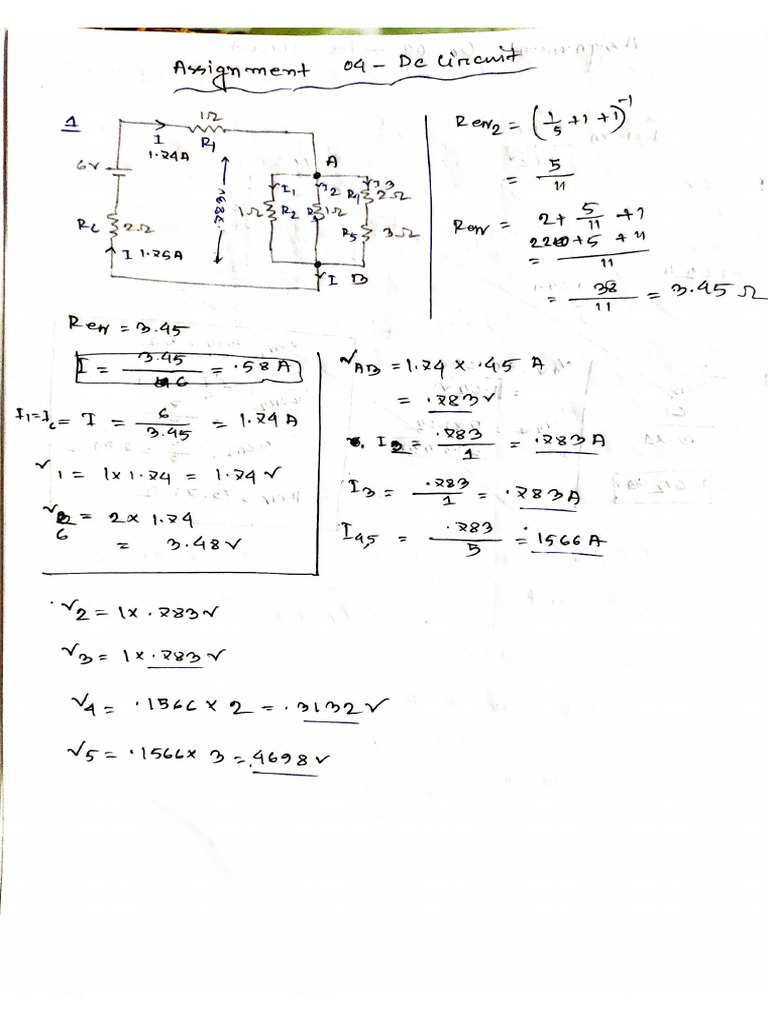 Assignment 04 - Dc Circuit
1
1Ω
I
R1
1.74A
6v
A
I1
I2
I3
R4 2Ω
1Ω R2
1Ω
R5 3Ω
R6 2Ω
I 1.75A
I B
Ren2 = (1/5 + 1 + 1)^-1
= 5/11
Ren = 2 + 5/11 + 1
= 38/11 = 3.45 Ω
Ren = 3.45
I = 3.45/6 = .58 A
I1 = I6 = I = 6/3.45 = 1.74 A
V1 = 1 x 1.74 = 1.74 V
V6 = 2 x 1.74
= 3.48 V
VAB = 1.74 x .45 A
= .783 V
I2 = .783/1 = .783 A
I3 = .783/1 = .783 A
I4,5 = .783/5 = .1566 A
V2 = 1 x .783 V
V3 = 1 x .783 V
V4 = .1566 x 2 = .3132 V
V5 = .1566 x 3 = .4698 V